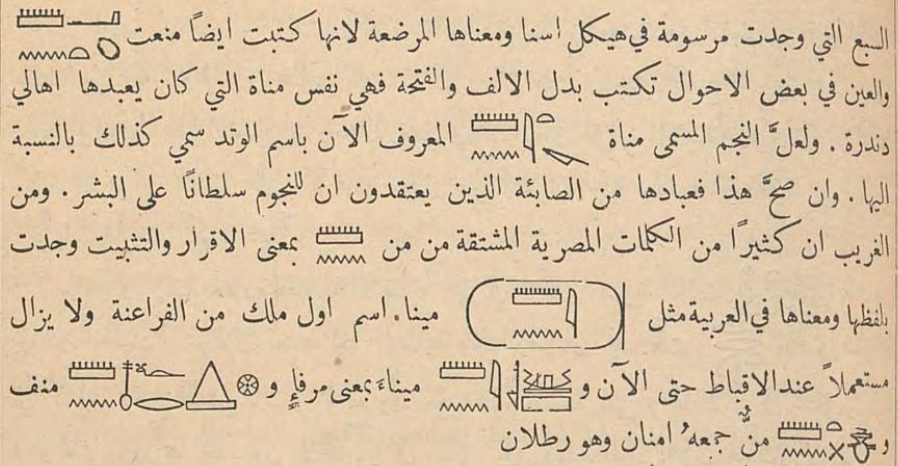 السبع التي وجدت مرسومة في هيكل اسنا ومعناها المرضعة لانها كتبت ايضاً منعت
والعين في بعض الاحوال تكتب بدل الالف والفتحة فهي نفس مناة التي كان يعبدها اهالي
دندرة . ولعلَّ النجم المسمى مناة المعروف الآن باسم الوتد سمي كذلك بالنسبة
اليها . وان صحَّ هذا فعبادها من الصابئة الذين يعتقدون ان للنجوم سلطانًا على البشر . ومن
الغريب ان كثيرًا من الكلمات المصرية المشتقة من من بمعنى الاقرار والتثبيت وجدت
بلفظها ومعناها في العربية مثل مينا . اسم اول ملك من الفراعنة ولا يزال
مستعملاً عند الاقباط حتى الآن و ميناءَ بمعنى مرفإٍ و منف
و منٌّ جمعهُ امنان وهو رطلان